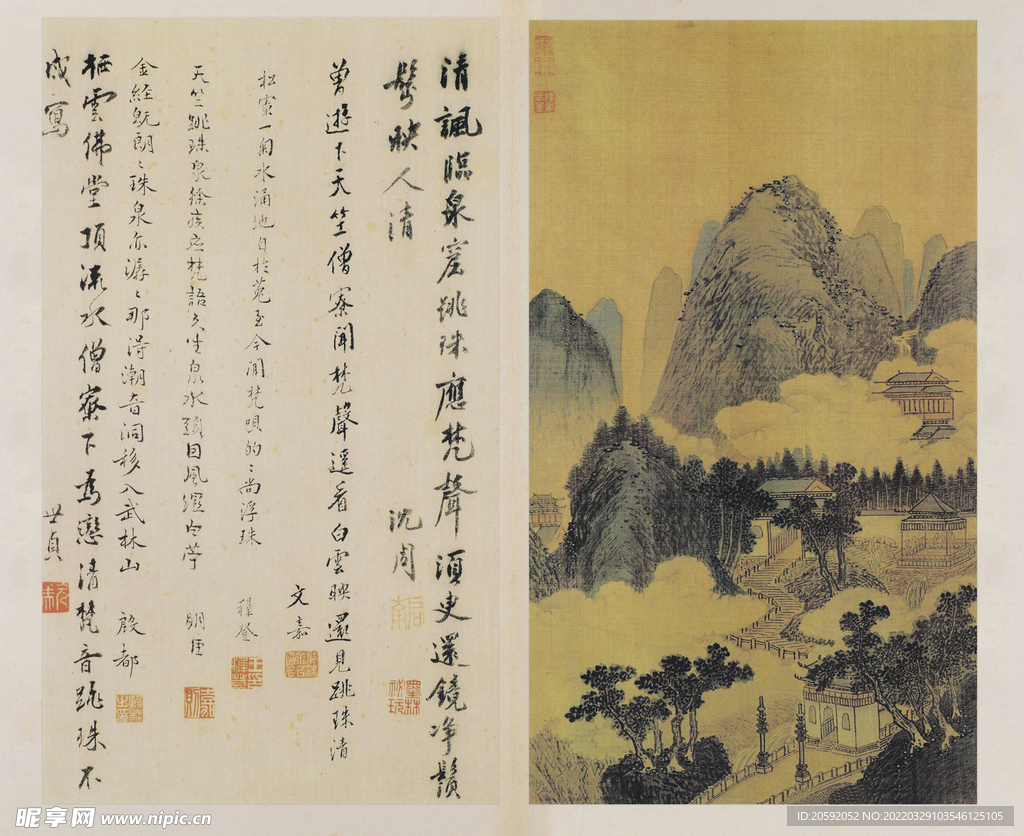 清諷臨泉窟跳珠應梵聲須臾還鏡净鬚
髩映人清
沈周
曾遊下天竺僧寮聞梵聲遥看白雲映還見跳珠清
文嘉
松寮一匊水涌地自於菟至今聞梵唄的〻尚浮珠
穉登
天竺跳珠泉徐疾應梵語
泉水
金経既朗〻珠泉亦潺〻那得潮音洞移入武林山
殷都
栖雲佛堂頂流水僧寮下為戀清梵音跳珠不
成寫
世貞
昵享网 www.nipic.cn
ID:20592052 NO:20220329103546125105